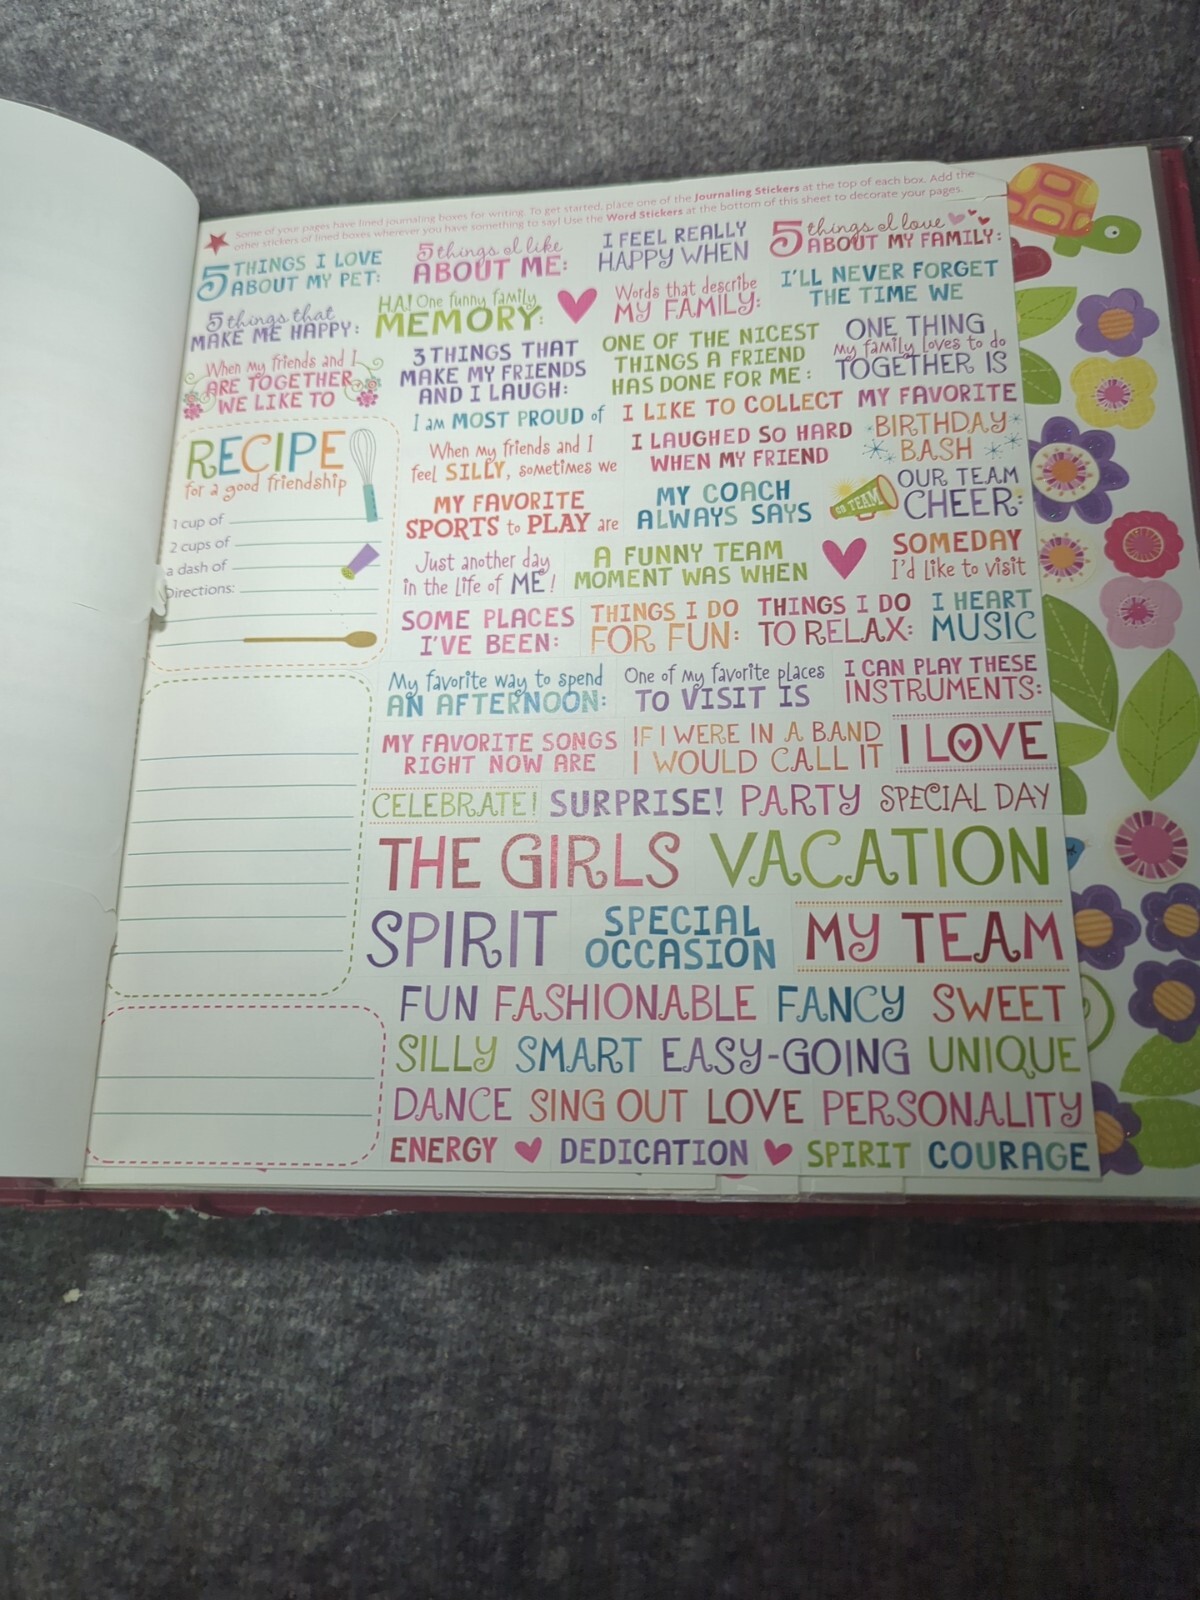 Some of your pages have lined journaling boxes for writing. To get started, place one of the Journaling Stickers at the top of each box. Add the
other stickers or lined boxes wherever you have something to say! Use the Word Stickers at the bottom of this sheet to decorate your pages.
5 THINGS I LOVE
ABOUT MY PET:
5 things I like
ABOUT ME:
I FEEL REALLY
HAPPY WHEN
5 things I love
ABOUT MY FAMILY:
5 things that
MAKE ME HAPPY:
HA! One funny family
MEMORY:
Words that describe
MY FAMILY:
I'LL NEVER FORGET
THE TIME WE
When my friends and I
ARE TOGETHER
WE LIKE TO
3 THINGS THAT
MAKE MY FRIENDS
AND I LAUGH:
ONE OF THE NICEST
THINGS A FRIEND
HAS DONE FOR ME:
ONE THING
My family loves to do
TOGETHER IS
I am MOST PROUD of
I LIKE TO COLLECT
MY FAVORITE
BIRTHDAY
BASH
RECIPE
for a good friendship
1 cup of
2 cups of
a dash of
Directions:
When my friends and I
feel SILLY, sometimes we
I LAUGHED SO HARD
WHEN MY FRIEND
MY FAVORITE
SPORTS to PLAY are
MY COACH
ALWAYS SAYS
GO TEAM
OUR TEAM
CHEER:
Just another day
in the life of ME!
A FUNNY TEAM
MOMENT WAS WHEN
SOMEDAY
I'd like to visit
SOME PLACES
I'VE BEEN:
THINGS I DO
FOR FUN:
THINGS I DO
TO RELAX:
I HEART
MUSIC
My favorite way to spend
AN AFTERNOON:
One of my favorite places
TO VISIT IS
I CAN PLAY THESE
INSTRUMENTS:
MY FAVORITE SONGS
RIGHT NOW ARE
IF I WERE IN A BAND
I WOULD CALL IT
I LOVE
CELEBRATE! SURPRISE! PARTY SPECIAL DAY
THE GIRLS VACATION
SPIRIT
SPECIAL
OCCASION
MY TEAM
FUN FASHIONABLE FANCY SWEET
SILLY SMART EASY-GOING UNIQUE
DANCE SING OUT LOVE PERSONALITY
ENERGY DEDICATION SPIRIT COURAGE